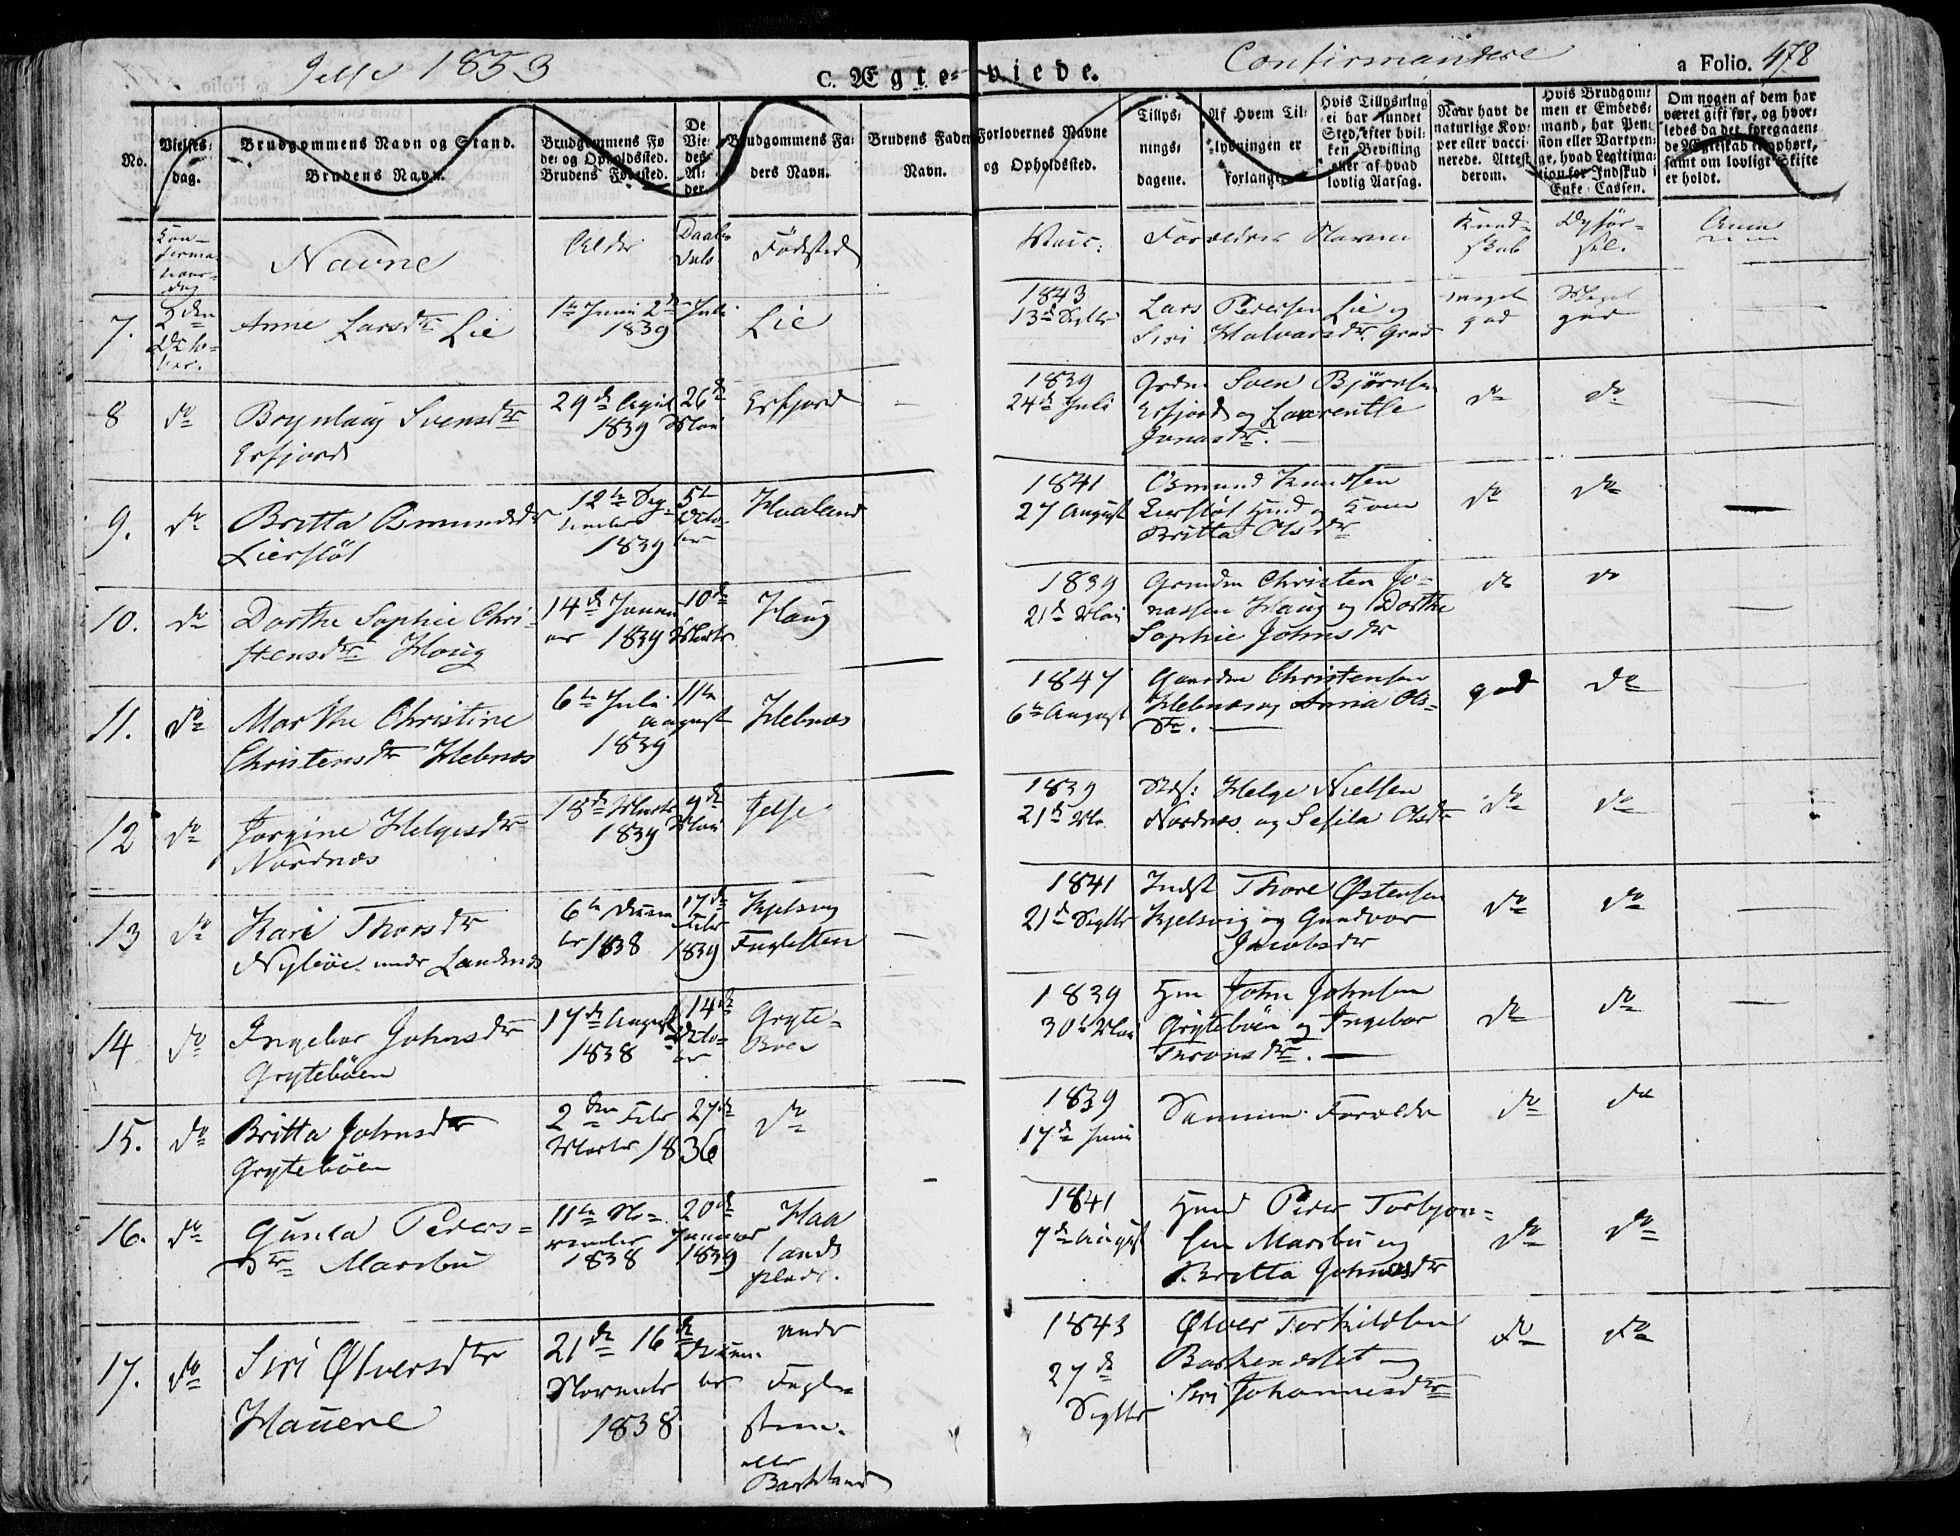 Jelse 1853
C. Ægte-viede.
Confirmandere
a Folio. 478
No.
Vielses-dag.
Brudgommens Navn og Stand.
Brudens Navn.
Brudgommens Fo
de- og Opholdssted.
Brudens Fødested.
De
Vie-
des
Al-
der
Brudgommens Fa-
ders Navn.
Brudens Faders
Navn.
Forlovernes Navne
og Opholdssted.
Tillys-
nings-
dagene.
Af Hvem Til-
lysningen er
forlangt.
Hvis Tillysning
ei har fundet
Sted, efter hvil-
ken Bevilling
eller af hvad
lovlig Aarsag.
Naar havt de
naturlige Kop-
per eller vacci-
nerede. Attest
derom.
Hvis Brudgom-
men er Embeds-
mand, har Pen-
sion eller Vartpen-
ge, hvad Legitima-
tion for Indskud i
Enke-Cassen.
Om nogen af dem har
været gift før, og hvor-
ledes da det foregaaen-
de Ægteskab er ophørt,
samt om lovligt Skifte
er holdt.
Navne
Alder
Daabs
Fødested
Vacc:
Forældres Navne
Kund-
skab
Opfør-
sel.
7.
2den
Octo-
ber.
Anne Larsdtr Lie
1te Juni 2de Juli
1839
Lie
1843
13de Septbr
Lars Pedersen Lie og
Siri Halvarsdtr
meget
god
Meget
god
8
do
Brynlaug Svensdtr
Erfjord
29de April 26de
1839 Mai
Erfjord
1839
24de Juli
Sven Bjørnsen
Erfjord og Laurentle
Jonasdtr.
do
do
9.
do
Britta Osmundsdtr
Lierstøl
12te Sep-
tember
1839
5te
Octo-
ber
Haaland
1841
27 August
Osmund Knudsen
Lierstøl Hmd og Kone
Britta Olsdtr
do
do
10.
do
Dorthe Sophie Chri-
stensdtr Haug
14de Janu-
ar 1839
10de
Marts
Haug
1839
21de Mai
Christen Jo-
nassen Haug og Dorthe
Sophie Johnsdtr
do
do
11.
do
Marthe Christine
Christensdtr Hebnæs
6te Juli
1839
11te
August
Hebnæs
1847
6te August
Christensen
Hebnæs og Anna Ols-
dtr.
god
do
12
do
Jorgine Helgesdtr
Nordnæs
18de Marts
1839
9de
Mai
Jelse
1839
21de Mai
Helge Nielsen
Nordnæs og Sesila Olsdtr
do
do
13
do
Kari Thorsdtr
Nybøe under Landnæs
6te Decem
ber 1838
17de
Febr
1839
Kjelsvig
1841
21de Septbr
Indst Thore Østensen
Kjelsvig og Gundvor
Jacobsdtr
do
do
14
do
Ingebor Johnsdtr
Grytebøen
17de August
1838
14de
Octo-
ber
Gryte-
Bøen
1839
30te Mai
Hm John Johnsen
Grytebøen og Ingebor
Thronsdtr.
do
do
15.
do
Britta Johnsdtr
Grytebøen
2den Febr 27de
Marts 1836
do
1839
17de Juni
Samme Forældre
do
do
16.
do
Gunla Peders-
dtr Marebu
11te No-
vember
1838
20de
Januar
1839
Haa
lands
plads.
1841
7de August
Hmd Peder Torbjørn-
sen Marebu og
Britta Johnsdtr
do
do
17.
do
Siri Ølversdtr
Hauene
21de 16de
Novembr
1838
Decem-
ber
under
Fugle-
steen
eller
Barkeland
1843
27de
Septbr
Ølver Torkildsen
Siri Johannesdtr
do
do